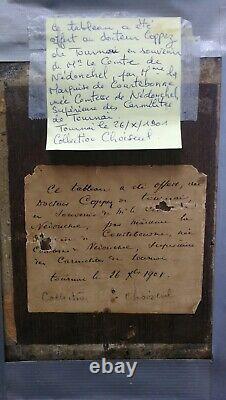 Ce tableau a été
offert au docteur Coppez
de Tournai en souvenir
de Mr Le Comte de
Nédonchel, par Mme la
Marquise de Courtebonne
née Comtesse de Nédonchel,
Supérieure des Carmélites
de Tournai
Tournai le 26/X/1901
Collection Choiseul
Ce tableau a été offert, au
Docteur Coppez de Tournai,
en Souvenir de Mr le
Nédonchel, par madame la
de Courtebonne, née
Comtesse Nédonchel, Supérieure
des Carmélites de Tournai
Tournai le 26 Xbre 1901.
Collection Choiseul
ebay